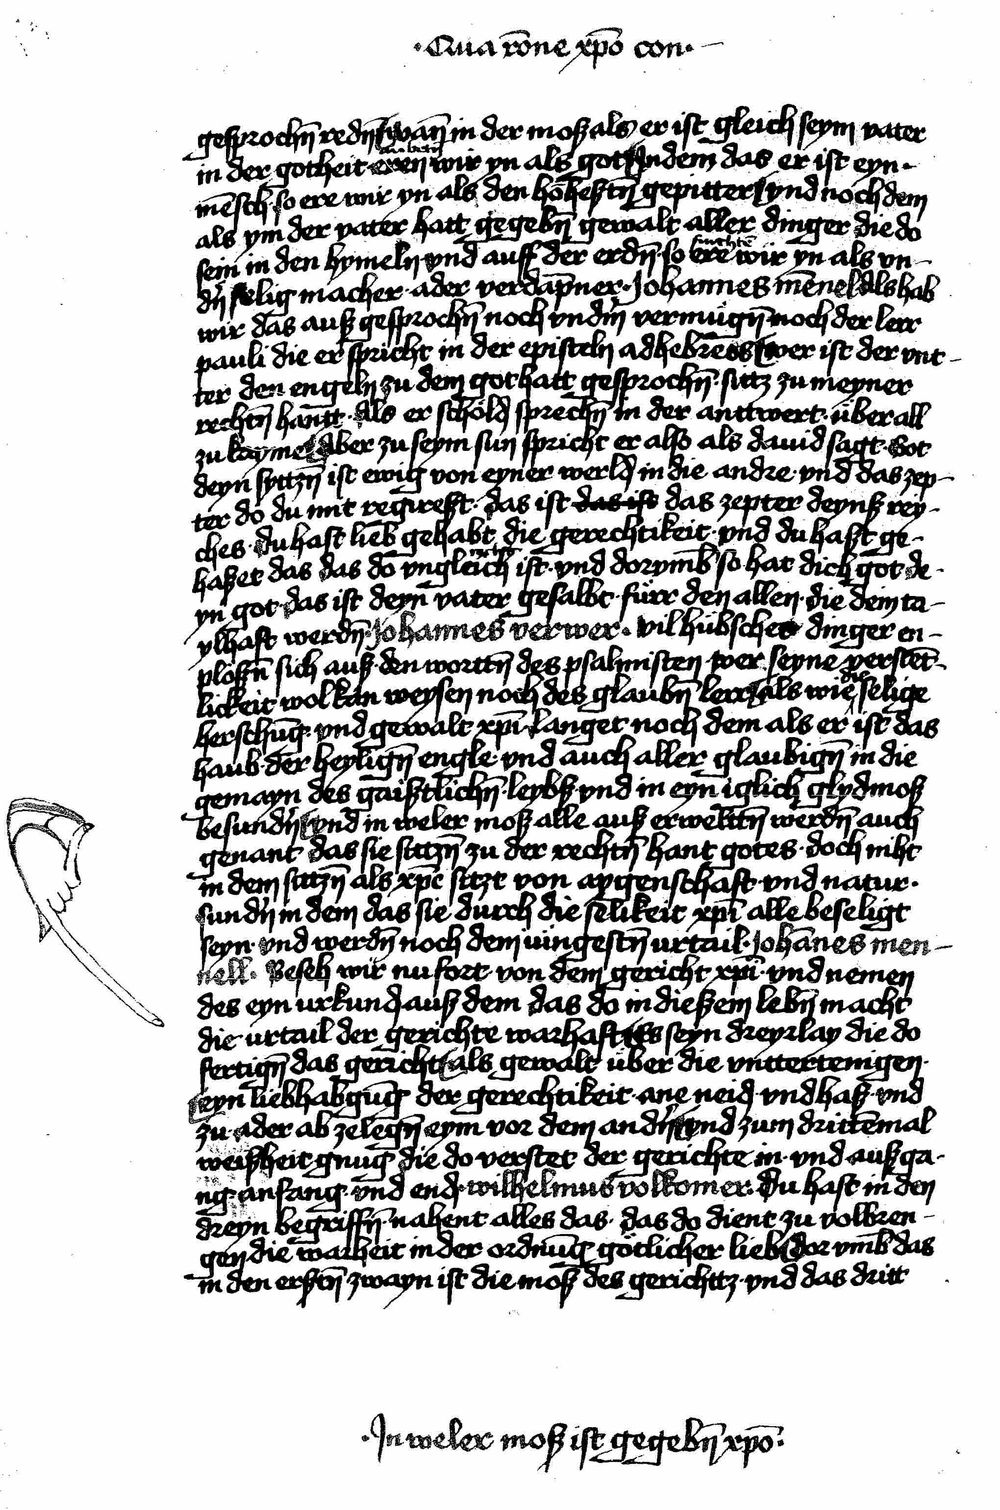 ·Qua rōne xp̄o con·
gesprochn̄ redn̄ wan̄ in der moß als er ist gleich seym vater
in der gotheit eren wir yn als got Jn dem das er ist eyn·
mēsch so ere wir yn als den hōhestn̄ gepitter vnd noch dem
als ym der vater hatt gegebn̄ gewalt aller dinger die do
sein in den hymeln vnd auff der erdn̄· so ere wir yn als vn-
dn̄ selig macher· ader verdāpner· Johannes mēnel Als hab
wir das auß gesprochn̄ noch vndm̄ vermügn̄ noch der lerr
pauli die er spricht in der episteln adhebreos wer ist der vnt-
ter den engeln zu dem got hatt gesprochn̄· sitz zu meyner
rechtn̄ hantt· Als er schold sprechn̄ in der anttwert· über all
zu kaymē Aber zu seym sun spricht er also als dauid sagt· Got
deyn syttzn̄ ist ewig von eyner werld in die andre· vnd das zep-
ter do du mit regirest· das ist das ist das zepter deynß rey-
ches· du hast lieb gehabt die gerechtikeit· vnd du hast ge-
haßet das das do vngleich ist· vnd dorvmb so hat dich got de-
yn got· das ist deyn vater gesalbt· fürr den allen· die dein ta-
ylhaft werdn̄· Johannes verwer· vil hübscher dinger en-
plosn̄ sich auß den worttn̄ des psalmisten wer seyne verstēt-
lickeit wol kan weysen noch des glaubn̄ lere als wie die selige
herschūg· vnd gewalt xp̄i langet noch dem als er ist das
haub· der heylign̄ engle· vnd auch aller glaubign̄ in die
gemayn des gaistlichn̄ leybß vnd in eyn iglich glydmoß
besundn̄ vnd in weler moß alle auß erweltn̄ werdn̄ auch
genant das sie sittzn̄ zu der rechtn̄ hant gotes· doch niht
in dem sittzn̄ als xp̄c sitzt von aygenschaft vnd natur·
sundn̄ in dem das sie durch die selikeit xp̄i alle beseligt
seyn· vnd werdn̄ noch dem iüngestn̄ urtail· Johānes men-
nell· Beseh wir nu fort von dem gericht xp̄i· vnd nemen
des eyn urkund auß dem das do in dießem lebn̄ macht
die urtail der gerichte warhaft Es seyn dreyrlay die do
fertign̄ das gericht als gewalt über die vnttertenigen·
eyn liebhabgūg der gerechtikeit· ane neid vnd haß vnd
zu ader ab zelegn̄ eym vor dem andn̄ vnd zum drittēmal
weißheit gnug die do verstet der gerichte in· vnd außga-
ng· anfang· vnd end· wilhelmus volkomer· Du hast in den
dreyn begriffn̄ nahent alles das· das do dient zu volbren-
gen die warheit in der ordnūg götlicher lieb dor vmb das
in den erstn̄ zwayn ist die moß des gerichttz vnd das dritt
·Jn weler moß ist gegebn̄ xp̄o·